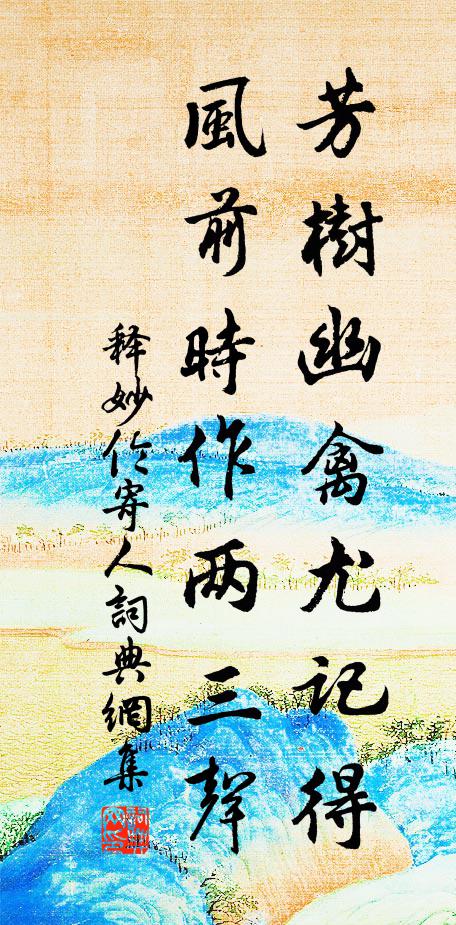 芳樹幽禽尤記得
風前時作兩三聲
释妙伦寄人詞典網集